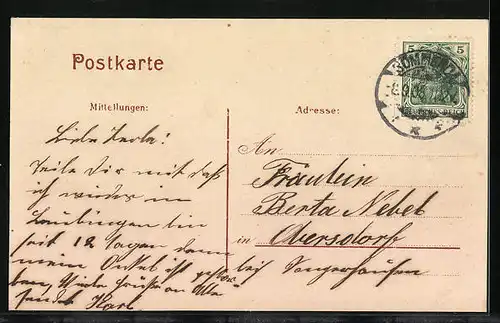 Postkarte
Mitteilungen:
Adresse:
5 5
SÖMMERDA
Liebe Berta!
Teile Dir mit daß
ich wieder in
Leubingen bin
seit 12 Tagen denn
mein Onkel ist gestor
ben, Viele Grüße an Alle
sendet Karl
An
Fräulein
Berta Nebel
in Obersdorf
bei Sangerhausen